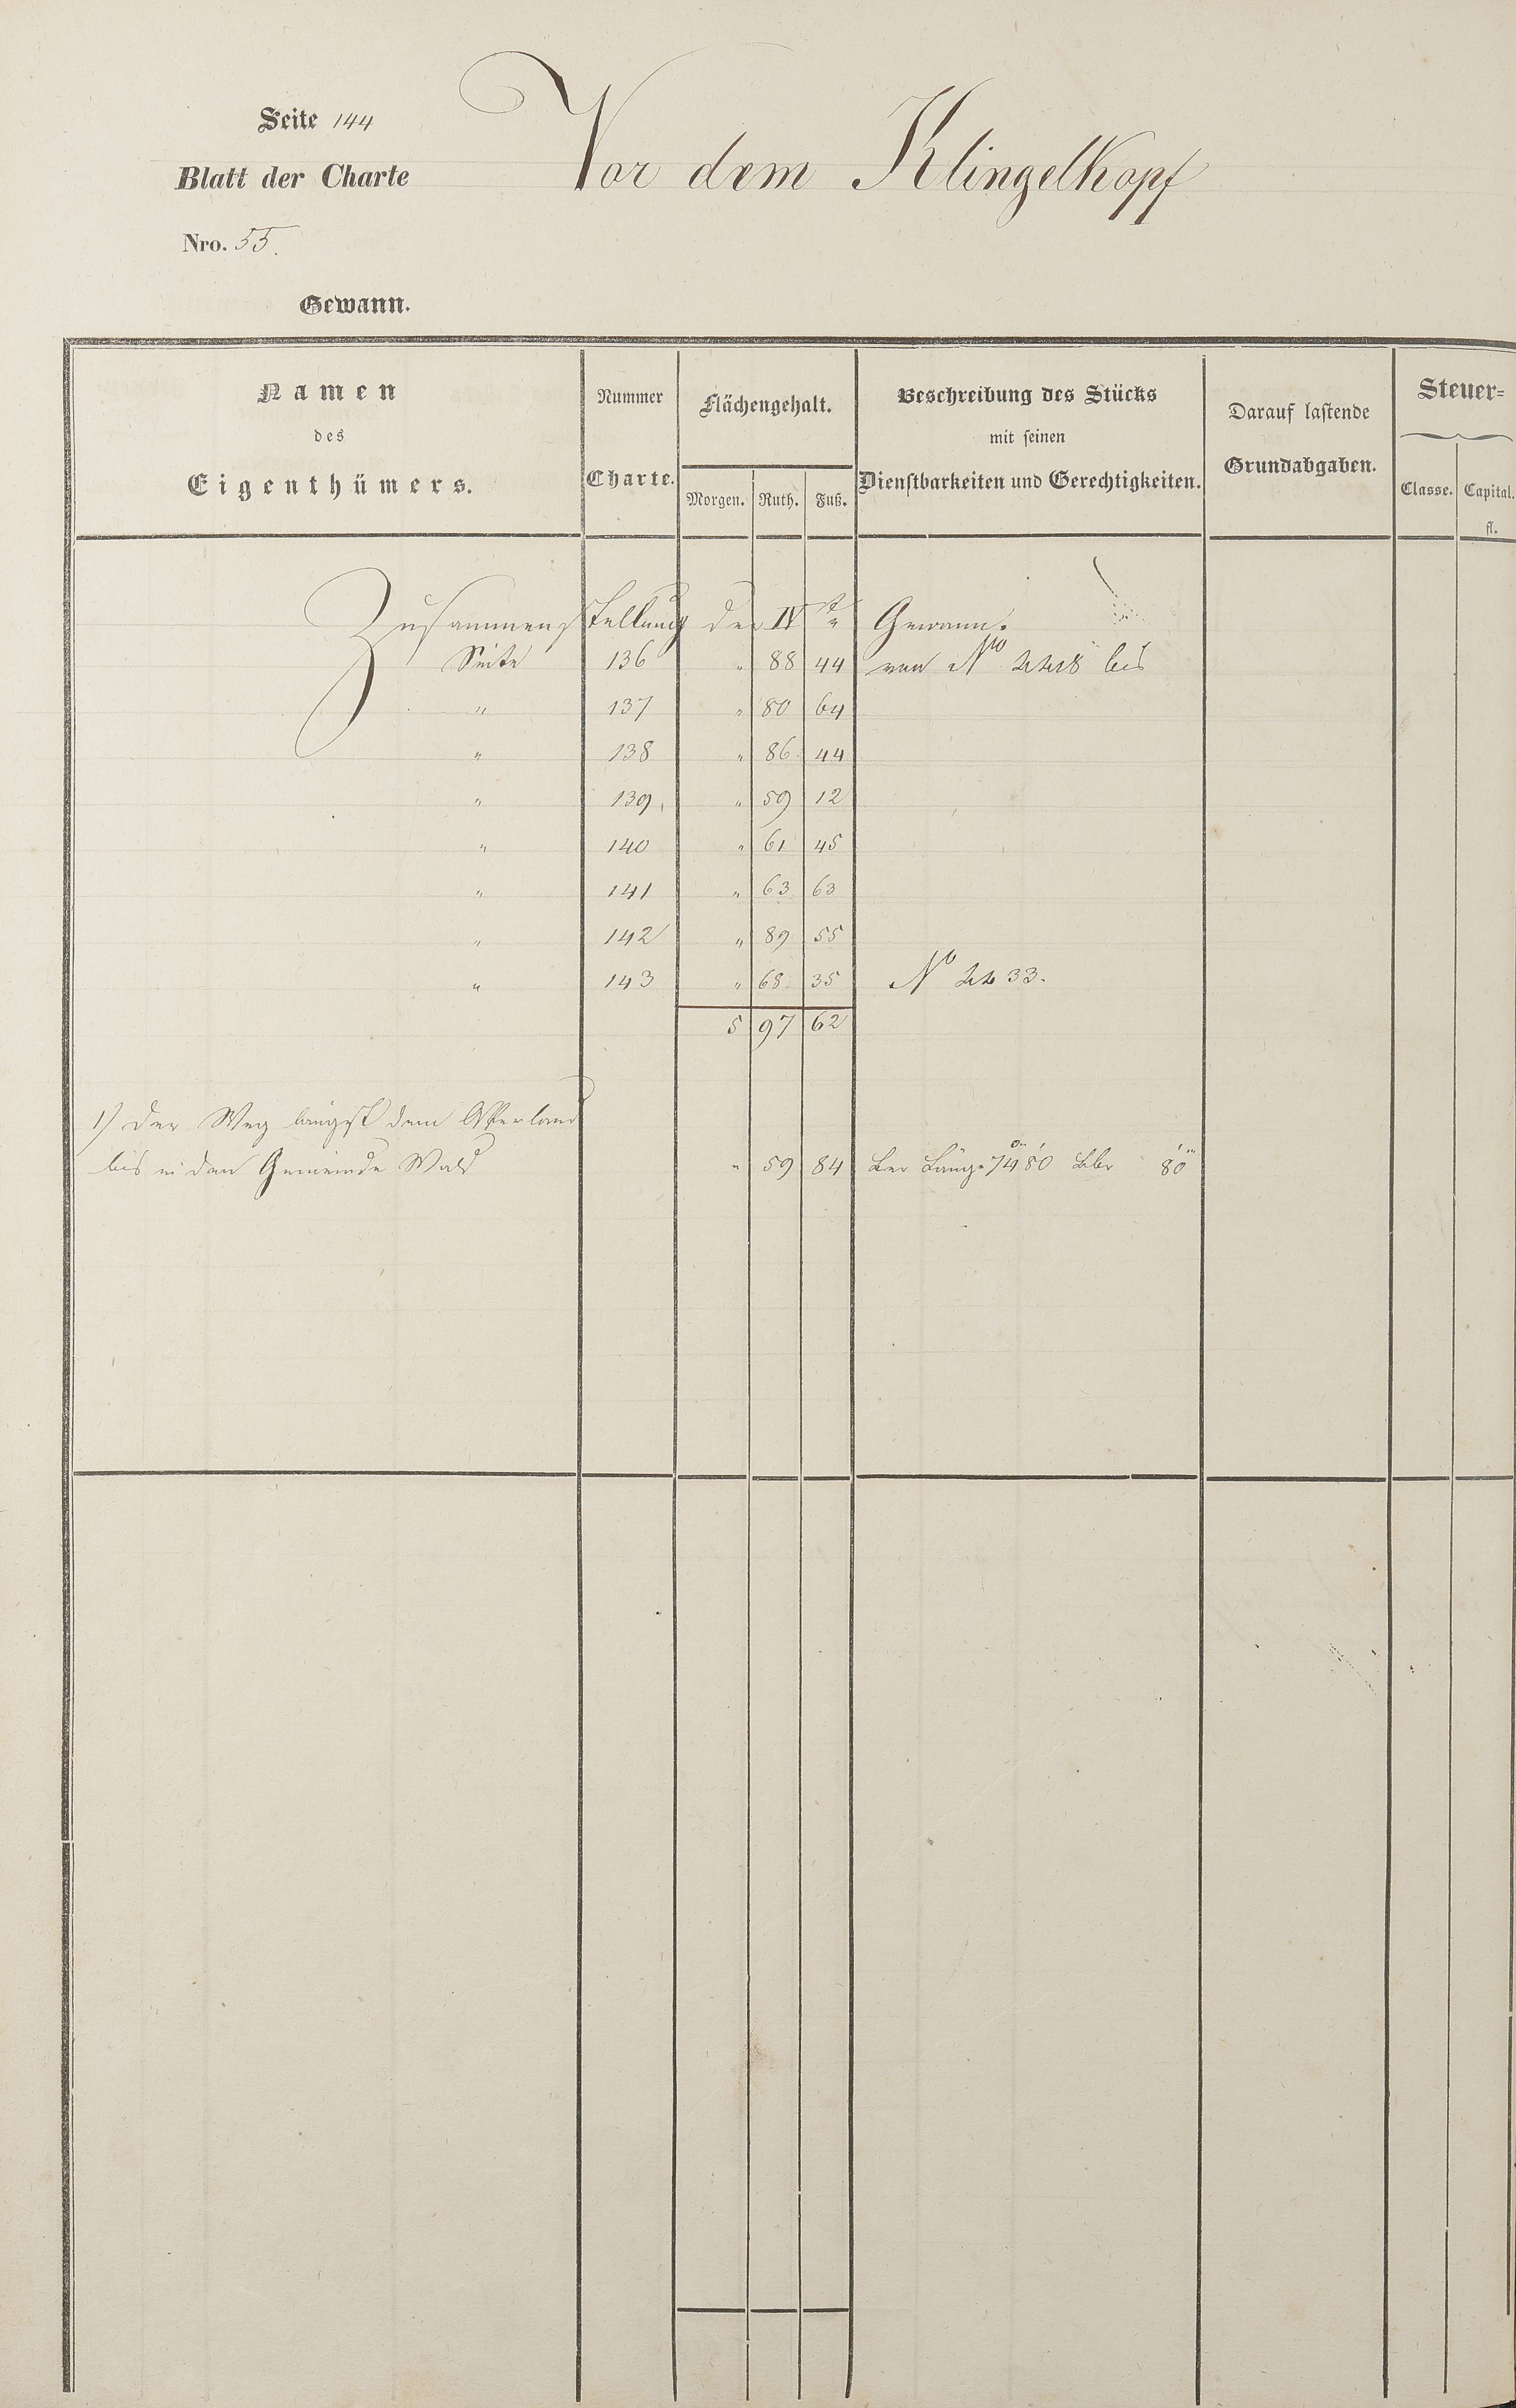 Seite 144
Vor dem Klingelkopf
Blatt der Charte
Nro. 55.
Gewann.
Namen des Eigenthümers.
Nummer Charte.
Flächengehalt.
Morgen. Ruth. Fuß.
Beschreibung des Stücks mit seinen Dienstbarkeiten und Gerechtigkeiten.
Darauf lastende Grundabgaben.
Steuer=
Classe. Capital.
fl.
Zusammenstellung der IVte Gewann.
Seite 136 " 88 44 von Nro 2228 bis
" 137 " 80 64
" 138 " 86 44
" 139 " 59 12
" 140 " 61 45
" 141 " 63 63
" 142 " 89 55
" 143 " 68 35 No 2233.
5 97 62
1) Der Weg längst dem
bis in den Gemeinde Wald " 59 84 Länge 7480 80